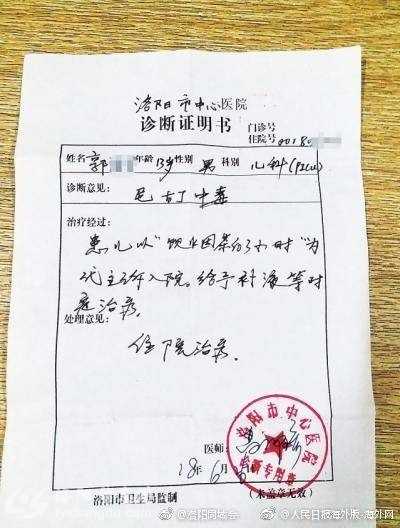 洛阳市中心医院
诊断证明书
门诊号
住院号 0018
姓名 郭 年龄 13岁 性别 男 科别 儿科(PICU)
诊断意见:
尼古丁中毒
治疗经过:
患儿以"饮 后 小时"为
代主诉入院。给予补液等对
症治疗。
处理意见:
住院治疗。
医师:
18年6月
洛阳市中心医院
诊断专用章
洛阳市卫生局监制
(未盖章无效)
@洛阳同城会
@人民日报海外版-海外网